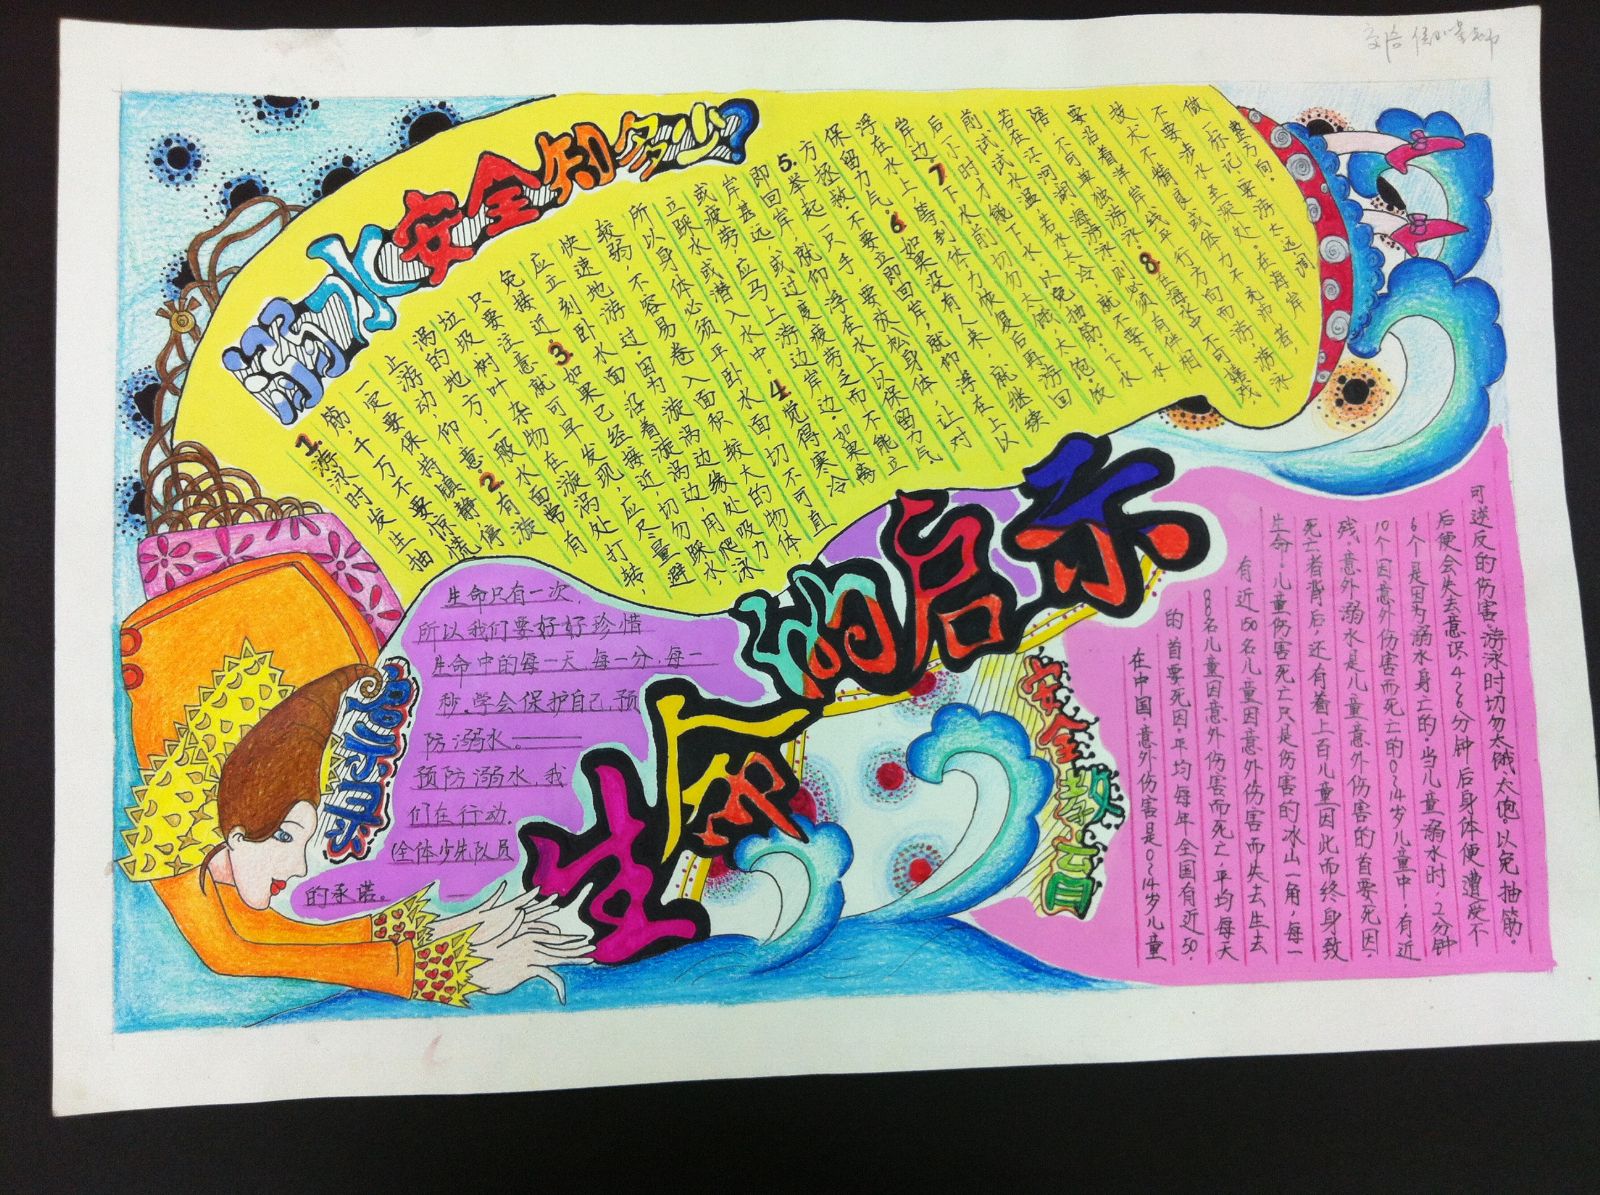 溺水安全知多少?
1.游泳时发生抽
筋，千万不要惊慌
一定要保持镇静，停
止游动，仰 意。2.有漩
涡的地方，一般水面常有
垃圾树叶杂物在漩涡处打转，
只要注意就可早发现，应尽量避
免接近。3.如果已经接近，切勿踩水，
应立刻卧水面，沿着漩涡边用爬泳
快速地游过。因为漩涡边缘处吸力
较弱，不容易卷入面积较大的物体
所以身体必须平卧水面，切不可直
立踩水或潜入水中。4.觉得寒冷
或疲劳，应马上游边岸边。如果离
岸甚远，或过度疲劳而不能立
即回岸，就仰浮在水上以保留力气。
5.举起一只手，要放松身体，让对
方拯救，不要立即回岸，就仰浮在上以
保留力气。6.如果没有人来，就继续
浮在水上，等到体力恢复后再游回
岸边。7.下水前切勿太饿，太饱。饭
后下时才能下水，以免抽筋，下水
前试试水温，若水太冷，就不要下水，
若在江河湖海游泳则必须有伴相
陪，不可单独游泳。8.在海水中不可嬉戏，
要沿着洋岸线平行方向而游，游泳
技术不精良或体力不充沛者，
不要涉水至深处。在海岸
做一标记，要游太远调
整方向。
生命的启示
启示录
生命只有一次，
所以我们要好好珍惜
生命中的每一天，每一分，每一
秒。学会保护自己，预
防溺水。——
预防溺水，我
们在行动。
全体少先队员
的承诺。——
安全教育
在中国，意外伤害是0~14岁儿童
的首要死因，平均每年全国有近50，
000名儿童因意外伤害而死亡，平均每天
有近150名儿童因意外伤害而失去生去
生命。儿童伤害死亡只是伤害的冰山一角，每一
死亡者背后，还有着上百儿童因此而终身致
残，意外溺水是儿童意外伤害的首要死因。
10个因意外伤害而死亡的0~14岁儿童中，有近
6个是因为溺水身亡的，当儿童溺水时，2分钟
后便会失去意识，4~6分钟后身体便遭受不
可逆反的伤害，游泳时切勿太饿、太饱，以免抽筋。